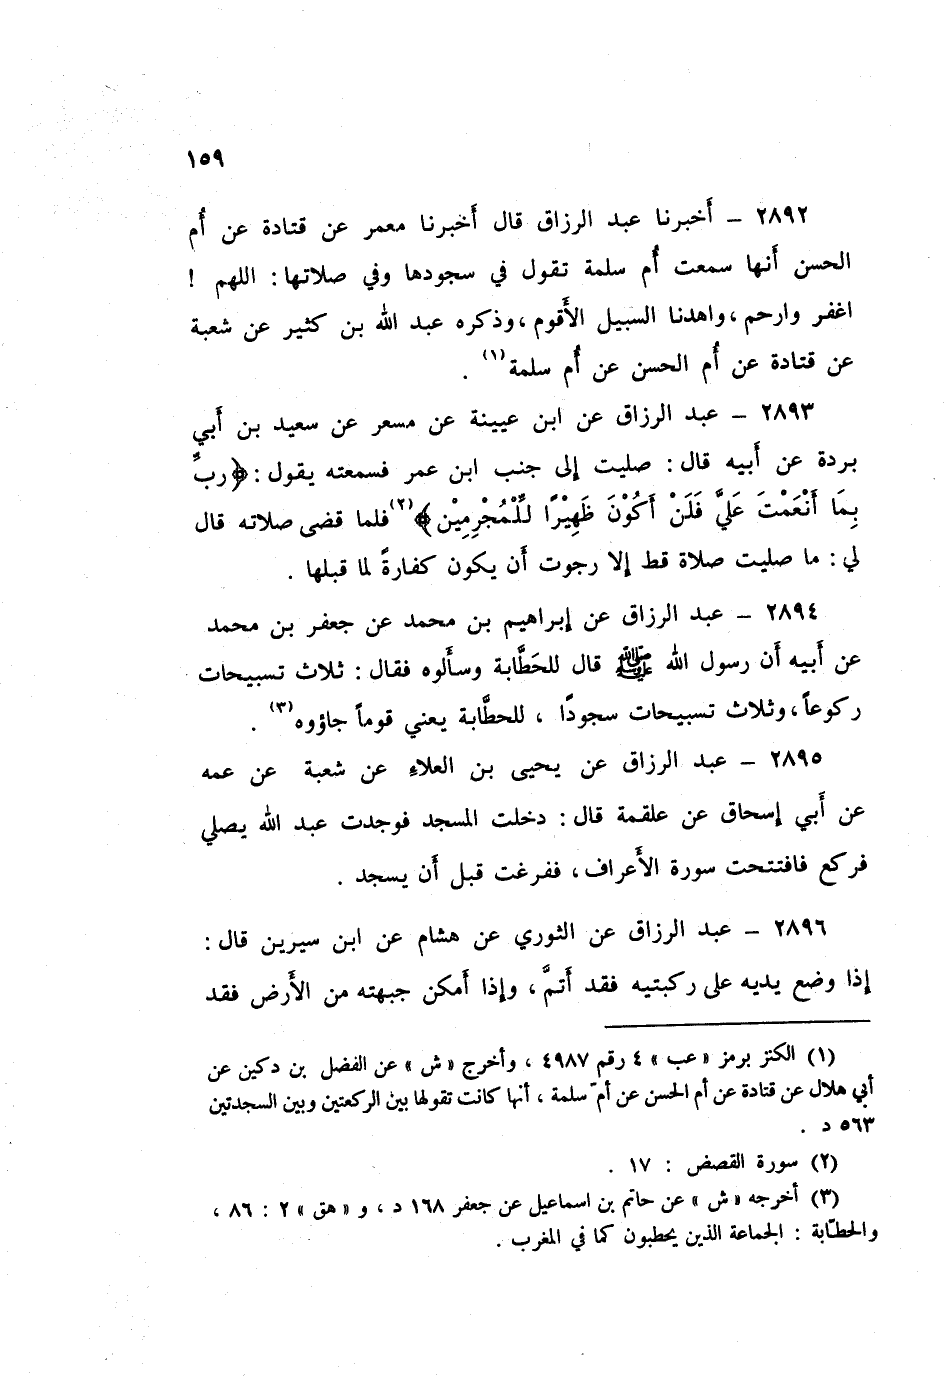 ١٥٩
٢٨٩٢ – أَخبرنا عبد الرزاق قال أَخبرنا معمر عن قتادة عن أُم
الحسن أَنها سمعت أُم سلمة تقول في سجودها وفي صلاتها: اللهم !
اغفر وارحم، واهدنا السبيل الأَقوم، وذكره عبد الله بن كثير عن شعبة
عن قتادة عن أُم الحسن عن أُم سلمة(١) .
٢٨٩٣ – عبد الرزاق عن ابن عيينة عن مسعر عن سعيد بن أَبي
بردة عن أَبيه قال: صليت إلى جنب ابن عمر فسمعته يقول: ﴿ربِّ
بِمَا أَنْعَمْتَ عَلَيَّ فَلَنْ أَكُوْنَ ظَهِيْرًا لِّلْمُجْرِمِيْن﴾(٢) فلما قضى صلاته قال
لي: ما صليت صلاة قط إلا رجوت أَن يكون كفارةً لما قبلها .
٢٨٩٤ – عبد الرزاق عن إبراهيم بن محمد عن جعفر بن محمد
عن أَبيه أَن رسول الله ﷺ قال للحَطَّابة وسأَلوه فقال: ثلاث تسبيحات
ركوعاً، وثلاث تسبيحات سجودًا ، للحطَّابة يعني قوماً جاؤوه(٣) .
٢٨٩٥ – عبد الرزاق عن يحيى بن العلاءِ عن شعبة عن عمه
عن أَبي إسحاق عن علقمة قال: دخلت المسجد فوجدت عبد الله يصلي
فركع فافتتحت سورة الأَعراف، ففرغت قبل أَن يسجد .
٢٨٩٦ – عبد الرزاق عن الثوري عن هشام عن ابن سيرين قال:
إذا وضع يديه على ركبتيه فقد أَتمَّ، وإذا أَمكن جبهته من الأَرض فقد
(١) الكنز برمز «عب» ٤ رقم ٤٩٨٧ ، وأخرج «ش» عن الفضل بن دكين عن
أبي هلال عن قتادة عن أم الحسن عن أمّ سلمة ، أنها كانت تقولها بين الركعتين وبين السجدتين
٥٦٣ د .
(٢) سورة القصص : ١٧ .
(٣) أخرجه «ش» عن حاتم بن اسماعيل عن جعفر ١٦٨ د ، و «هق» ٢ : ٨٦ ،
والحطّابة : الجماعة الذين يحطبون كما في المغرب .